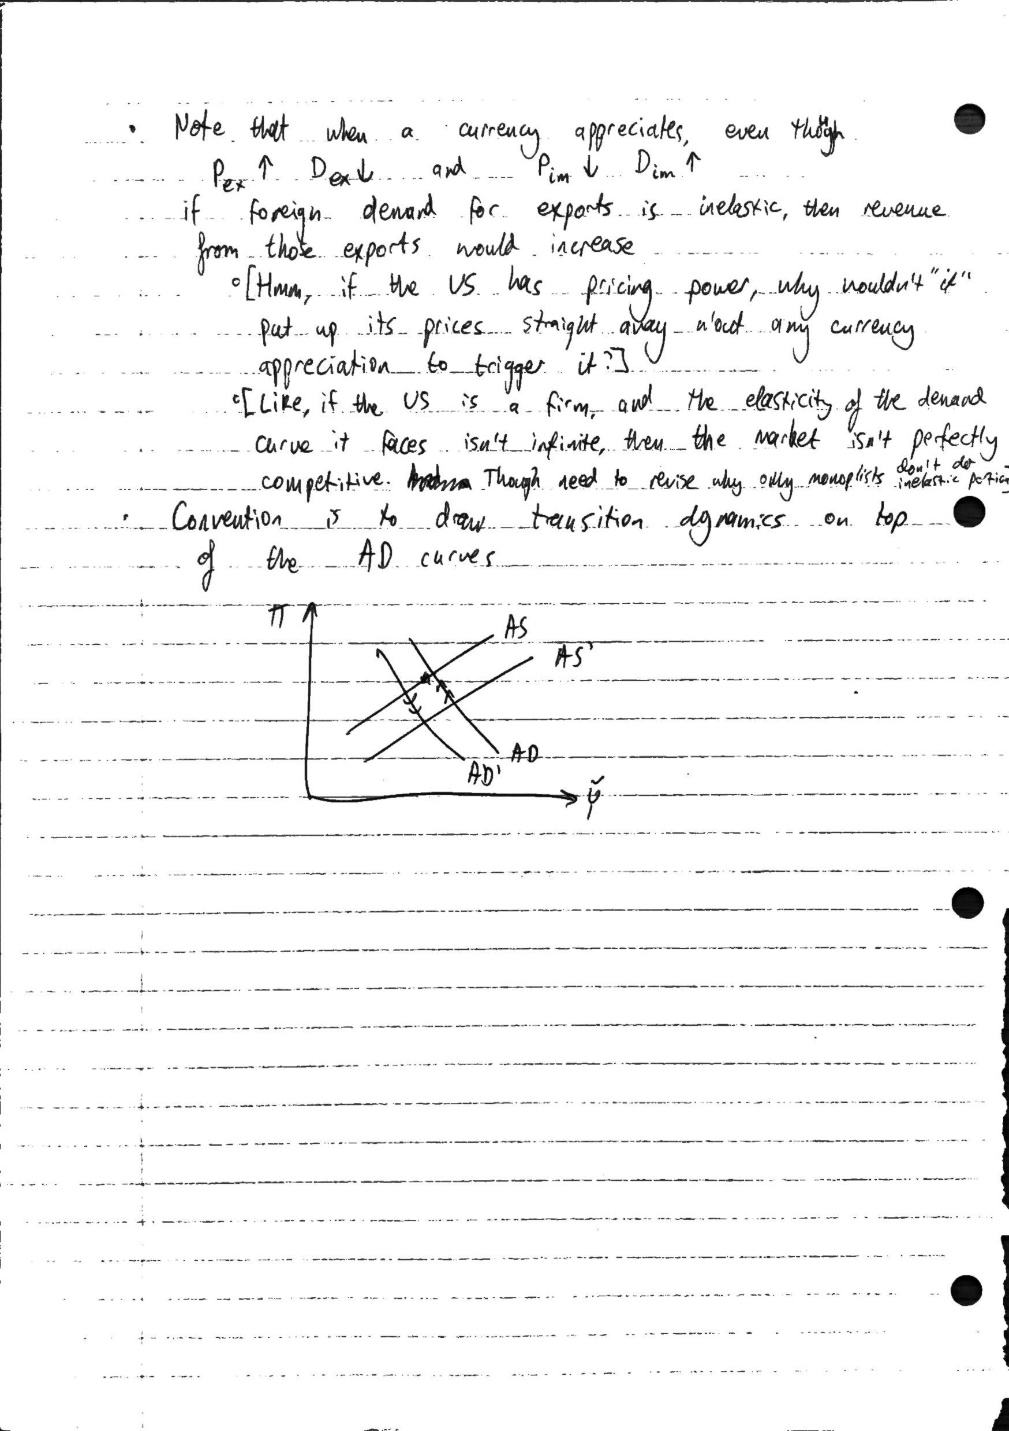 • Note that when a currency appreciates, even though
P_ex ↑ D_ex ↓ and P_im ↓ D_im ↑
if foreign demand for exports is inelastic, then revenue
from those exports would increase
◦ [Hmm, if the US has pricing power, why wouldn't "it"
put up its prices straight away w'out any currency
appreciation to trigger it?]
◦ [Like, if the US is a firm, and the elasticity of the demand
curve it faces isn't infinite, then the market isn't perfectly
competitive. Though need to revise why only monoplists don't do inelastic
• Convention is to draw transition dynamics on top
of the AD curves
π
AS
AS'
AD
AD'
Ỹ